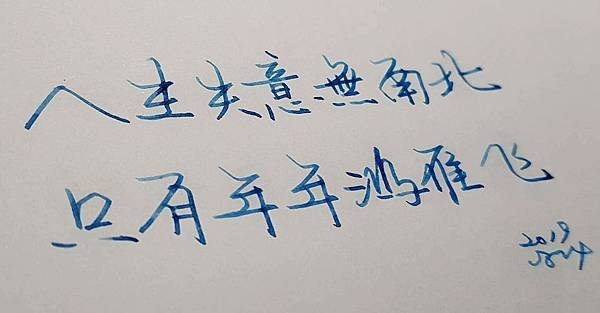 人生失意無南北
只有年年鸿雁飞
2019